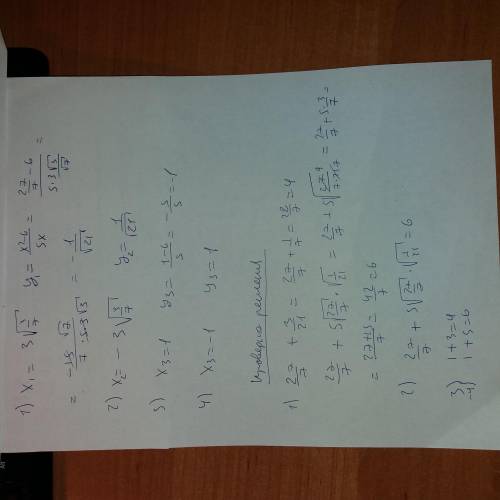 1) x₁ = 3√(3/7)   y₁ = (x²-6)/5x = (27/7 - 6)/(5·3√3/√7) =
= -15√7/(7·5·3√3) = -1/√21
2) x₂ - 3√(3/7)   y₂ = 1/√21
3) x₃=1   y₃ = (1-6)/5 = -5/5 = -1
4) x₃=-1   y₃=1
Проверка решения
1) 27/7 + 3/21 = 27/7 + 1/7 = 28/7 = 4
27/7 + 5√(27/7)·√(1/21) = 27/7 + 5√(27/(7·21)) = 27/7 + 5·3/7 =
= (27+15)/7 = 42/7 = 6
2) 27/7 + 5√(27/7)·√(1/21) = 6
3) 1+3=4
4) 1+5=6